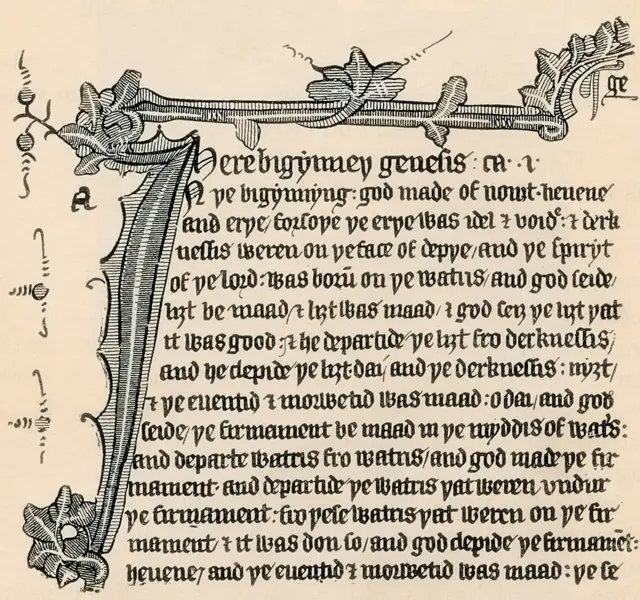 ge
Here bigynneþ genesis : ca · i ·
a
In þe bigynnyng: god made of nowt heuene
and erþe/ forsoþe þe erþe was idel ⁊ voide: ⁊ derk
nessis weren on þe face of depþe/ and þe spiryt
of þe lord: was borū on þe watris/ and god seide/
liȝt be maad/ ⁊ liȝt was maad/ ⁊ god seiȝ þe liȝt þat
it was good: ⁊ he departide þe liȝt fro derknessis/
and he clepide þe liȝt dai/ and þe derknessis: nyȝt/
⁊ þe euentid ⁊ morwetid was maad: o dai/ and god
seide/ þe firmament be maad in þe myddis of watʳs:
and departe watris fro watris/ and god made þe fir
mament· and departide þe watris þat weren vndur
þe firmament: fro þese watris þat weren on þe fir
mament/ ⁊ it was don so/ and god clepide þe firmamēt:
heuene/ and þe euentid ⁊ morwetid was maad: þe se